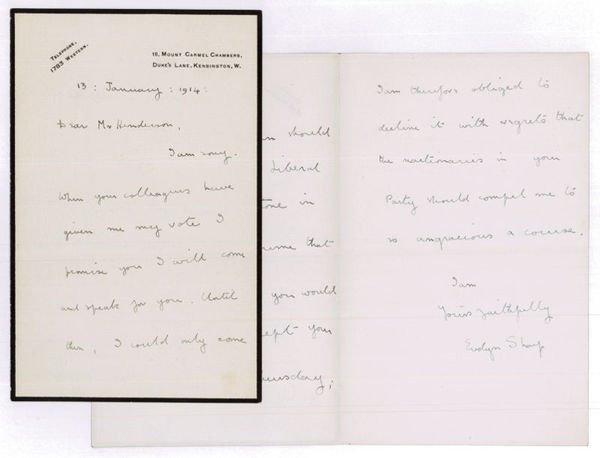 TELEPHONE,
1783 WESTERN.
16, MOUNT CARMEL CHAMBERS,
DUKE'S LANE, KENSINGTON, W.
13 : January : 1914 :
Dear Mr Henderson,
I am sorry.
When your colleagues have
given me my vote I
promise you I will come
and speak for you. Until
then, I could only come
should
Liberal
in
that
you would
your
I am therefore obliged to
decline it with regrets that
the reactionaries in your
Party should compel me to
so ungracious a course.
I am
Yours faithfully
Evelyn Sharp